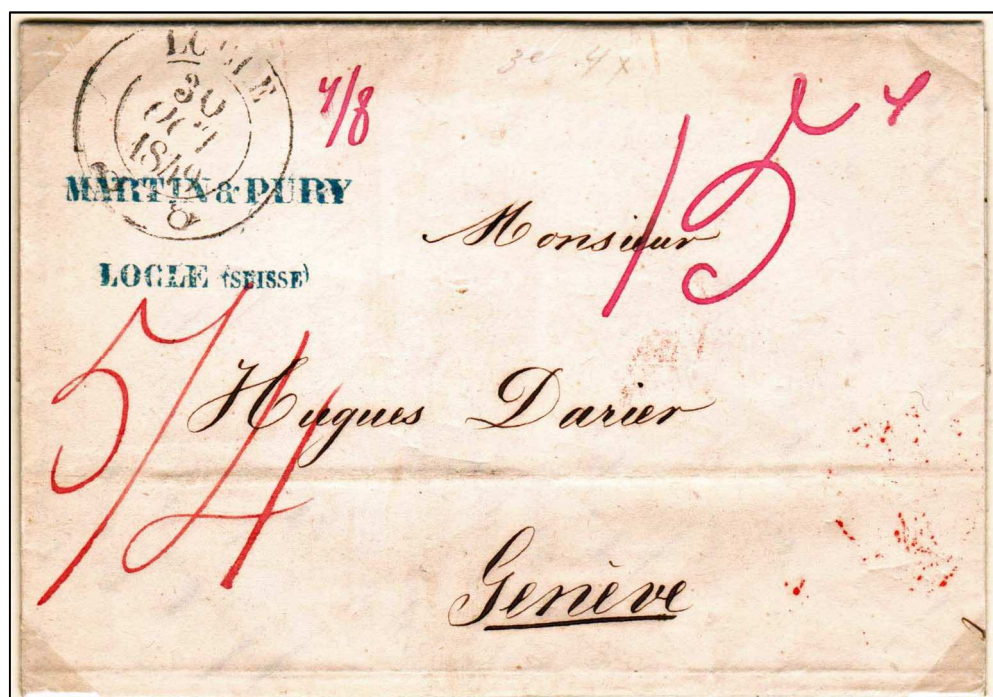 LOCLE
30
OCT
1849
8
4/8
3e 4x
15
MARTIN & PURY
LOCLE (SUISSE)
Monsieur
5/4
Hugues Darier
Genève